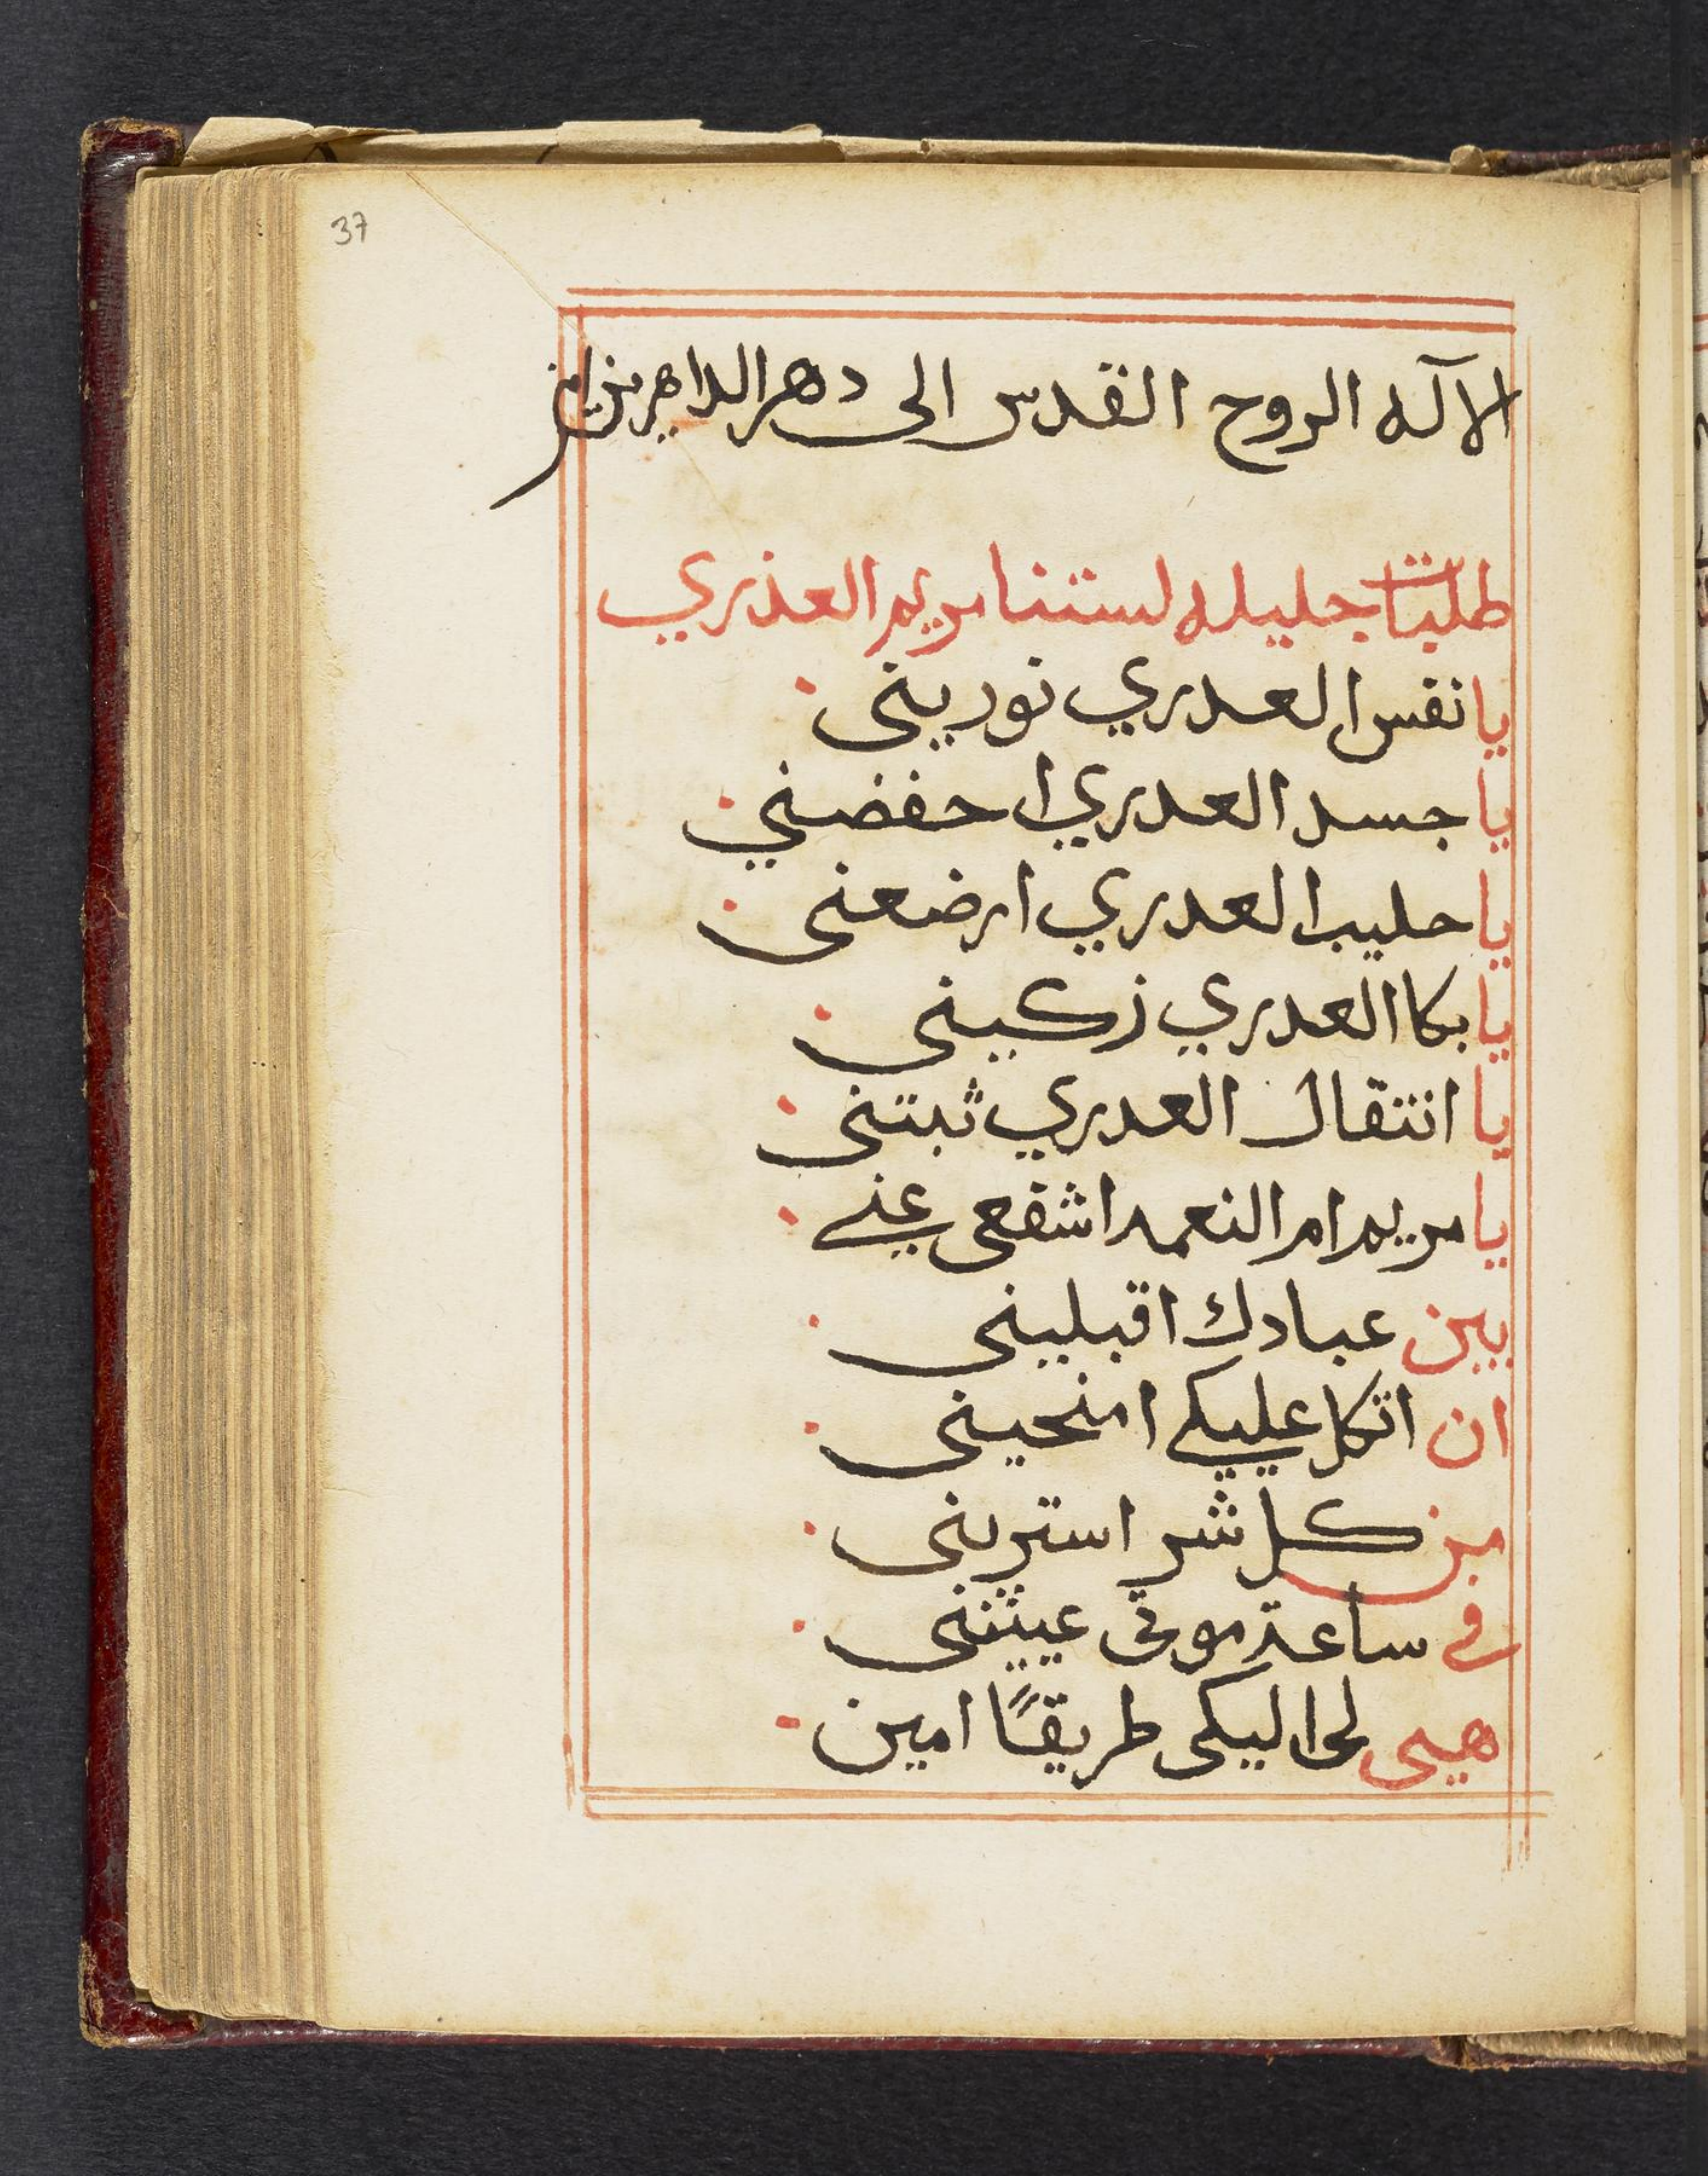 37
الاله الروح القدس الى دهر الداهرين امين
طلبات جليله لستنا مريم العذري
يا نفس العدري نوريني
يا جسد العدري احفضني
يا حليب العدري ارضعني
يا بكا العدري زكيني
يا انتقال العدري ثبتني
يا مريم ام النعمه اشفعي عني
بين عبادك اقبليني
ان اتكل عليكي امنحيني
من كل شر استريني
في ساعة موتي عيينني
هيي لي اليكي طريقًا امين